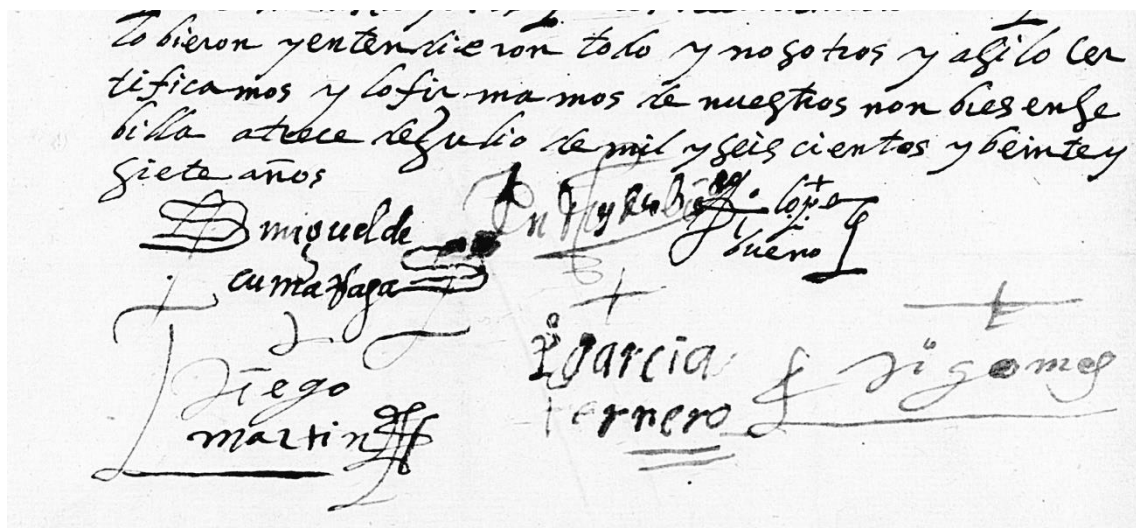 lo bieron y entendieron todo y nosotros y asi lo cer
tificamos y lo firmamos de nuestros nonbres en se
billa a trece de Julio de mil y seis cientos y beinte y
siete años
miguel de
cumarraga
lope
bueno
diego
martin
garcia
ternero
gomes